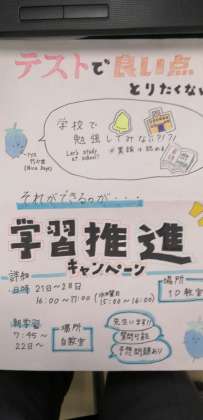 テストで良い点
とりたくない
学校で
勉強してみない?!?!
Let's study
at school!!
(Nice Days)
それができるのが・・・・
学習推進
キャンペーン
詳細
日時 21日〜28日
16:00〜17:00 (水曜日 15:00〜16:00)
場所
1D教室
朝学習
7:45〜
22日〜
場所
自教室
先生います!!
質問可能
予想問題あり